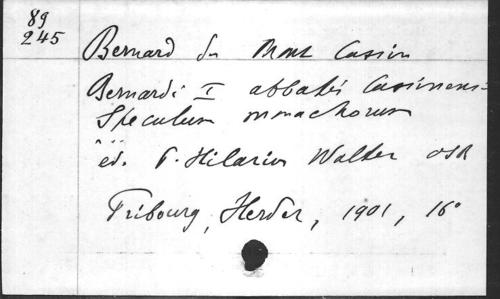 89
245
Bernard du Mont Cassin
Bernardi I abbatis Casinens-
Speculum monachorum
éd. P. Hilarius Walter OSB
Fribourg, Herder, 1901, 16°